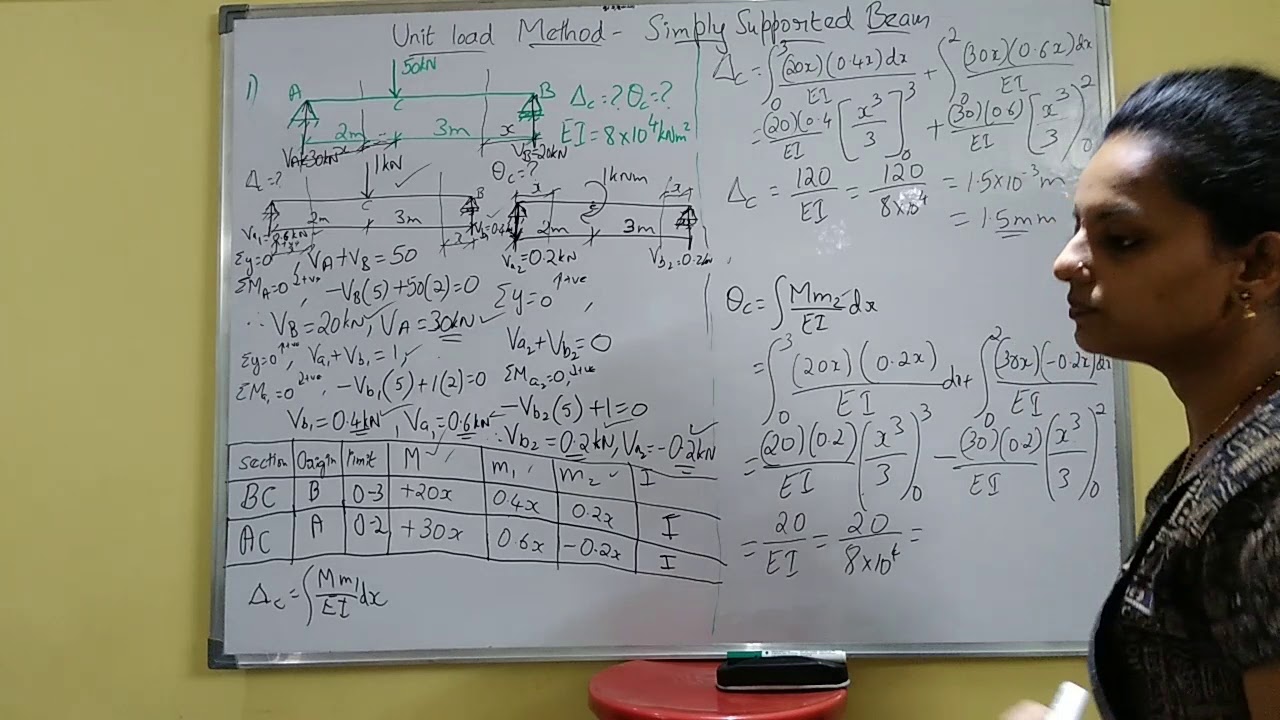 Unit load Method - Simply Supported Beam
1)
50kN
A
C
B
2m
3m
x
VA=30kN
VB=20kN
Δc=? θc=?
EI = 8×10⁴kNm²
Δ=?
1kN
C
B
2m
3m
Va₁=
0.6kN
θc=?
1kNm
x
x
2m
3m
Va₂=0.2kN
Vb₂=0.2kN
Σy=0, VA+VB=50
ΣMA=0 +ve, -VB(5)+50(2)=0
∴ VB=20kN, VA=30kN
Σy=0 +ve, Va₁+Vb₁=1,
ΣMa₁=0 +ve, -Vb₁(5)+1(2)=0
Vb₁=0.4kN, Va₁=0.6kN
Σy=0 +ve,
Va₂+Vb₂=0
ΣMa₂=0, +ve
-Vb₂(5)+1=0
∴Vb₂=0.2kN, Va₂=-0.2kN
section Origin limit M m₁ m₂ I
BC B 0-3 +20x 0.4x 0.2x I
AC A 0-2 +30x 0.6x -0.2x I
Δc=∫Mm₁/EI dx
Δc=∫₀³(20x)(0.4x)dx/EI + ∫₀²(30x)(0.6x)dx/EI
=(20)(0.4/EI [x³/3]₀³ + (30)(0.6)/EI [x³/3)₀²
Δc=120/EI=120/8×10⁴=1.5×10⁻³m
=1.5mm
θc=∫Mm₂/EI dx
=∫₀³(20x)(0.2x)/EI dx+∫₀²(30x)(-0.2x)dx/EI
=(20)(0.2)/EI (x³/3)₀³-(30)(0.2)/EI (x³/3)₀²
=20/EI=20/8×10⁴=